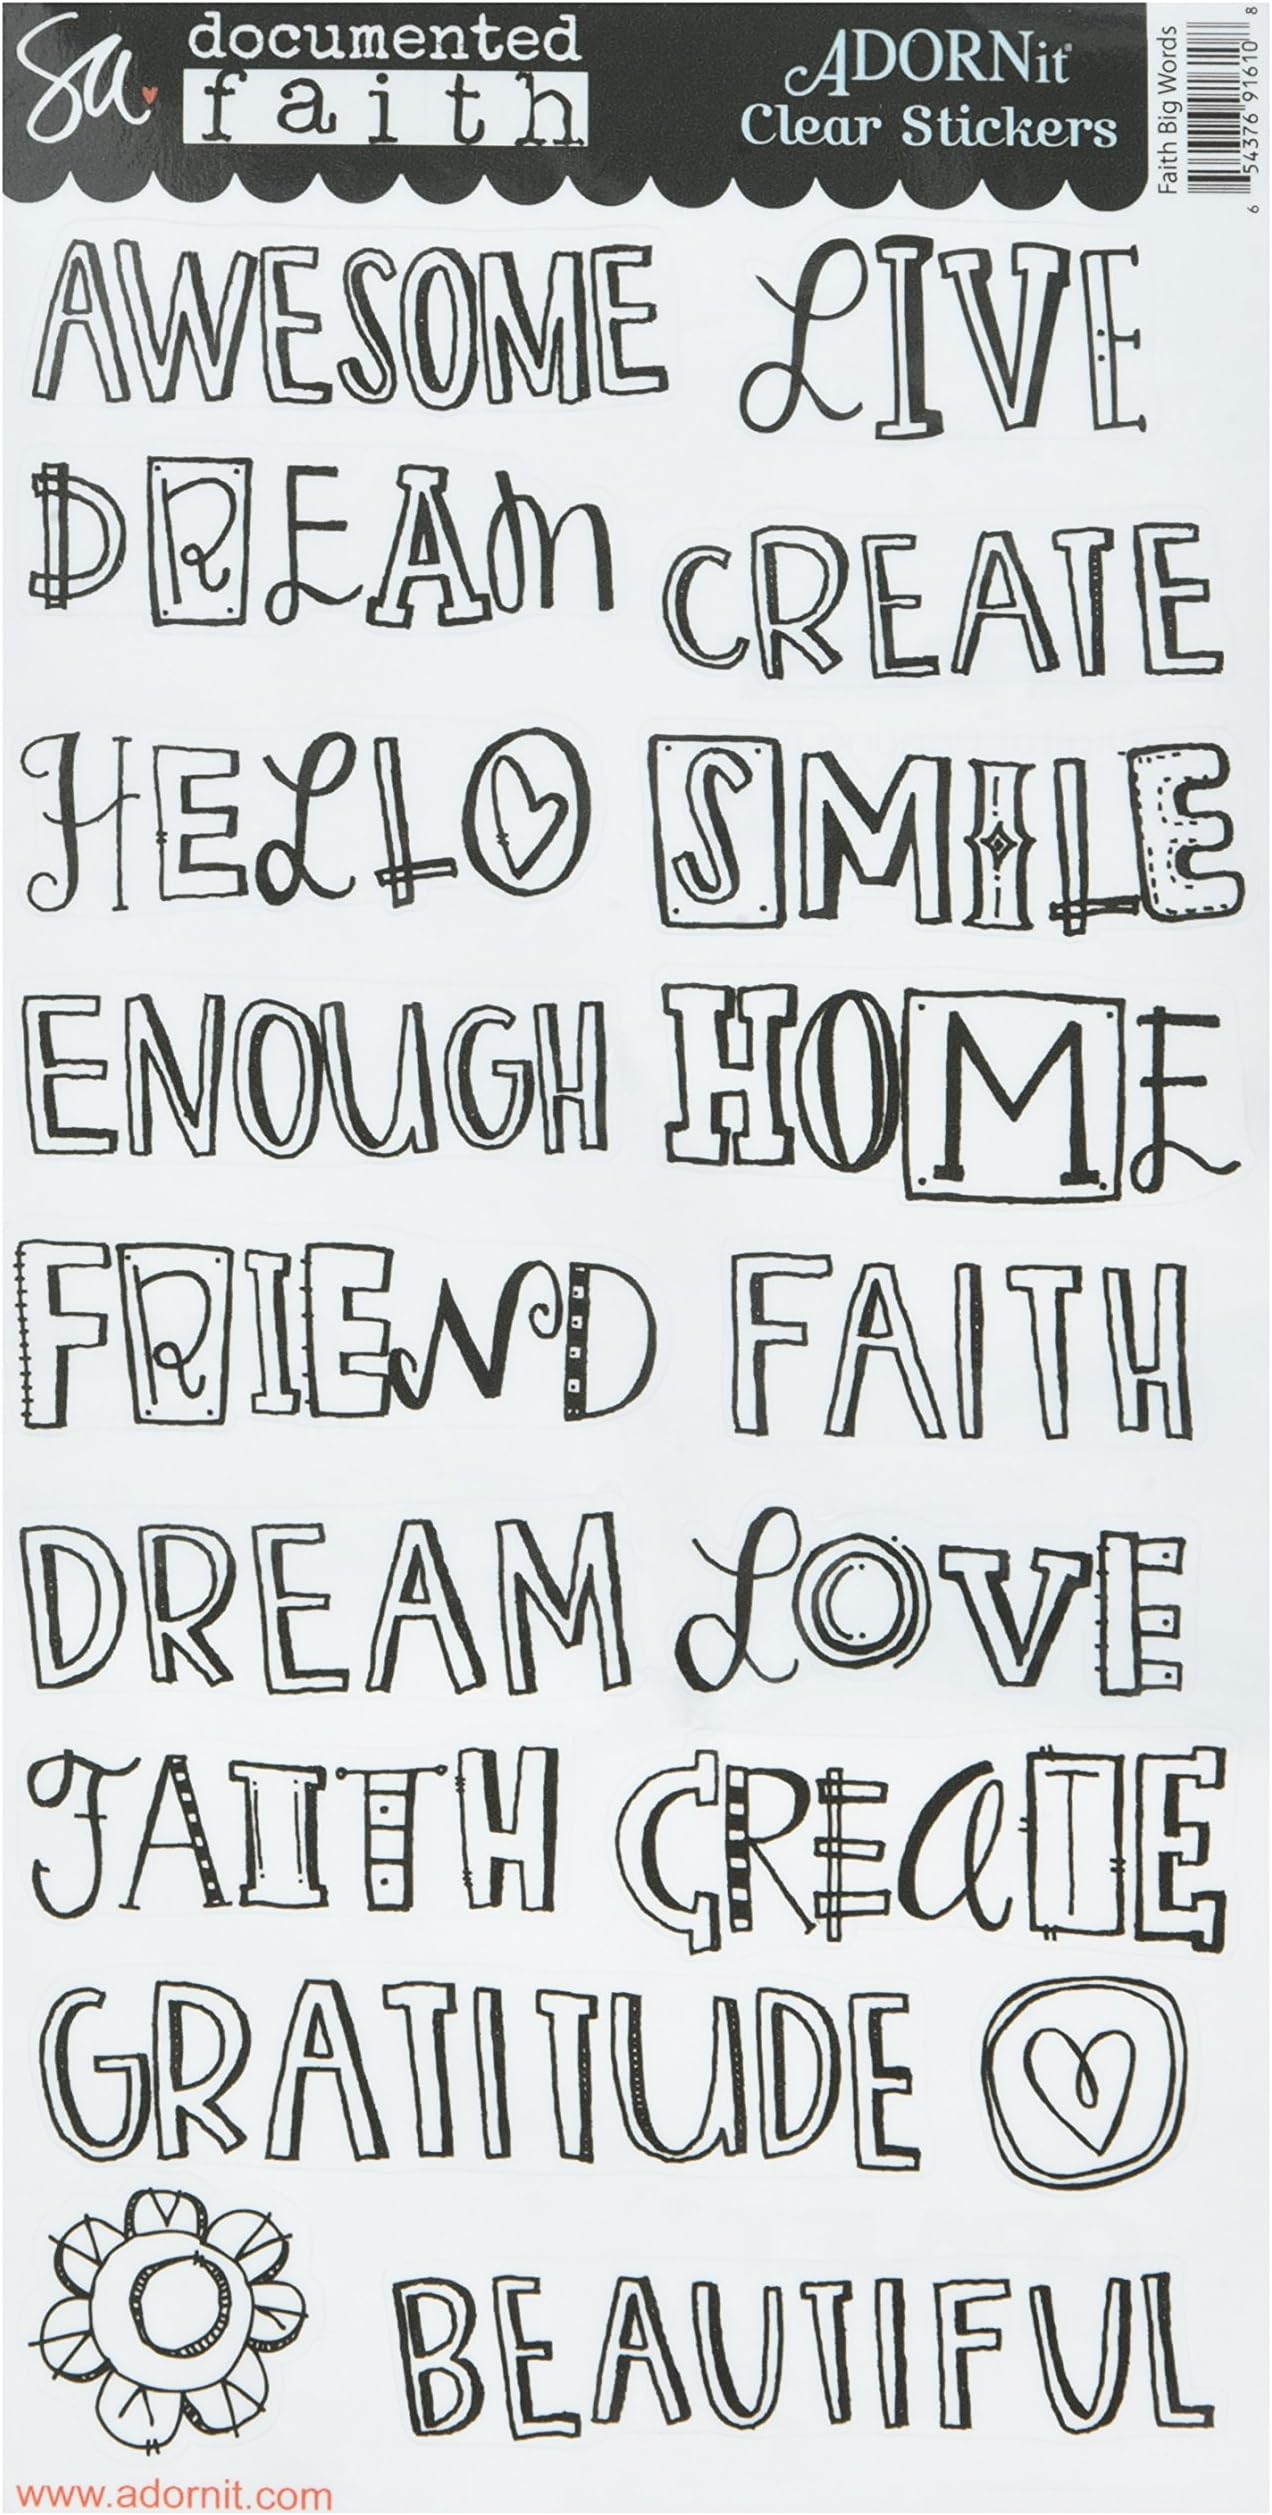 Sa documented ADORNit
faith Clear Stickers
Faith Big Words
6 54376 91610 8
AWESOME LIVE
DREAM CREATE
HELLO SMILE
ENOUGH HOME
FRIEND FAITH
DREAM LOVE
FAITH CREATE
GRATITUDE
BEAUTIFUL
www.adornit.com